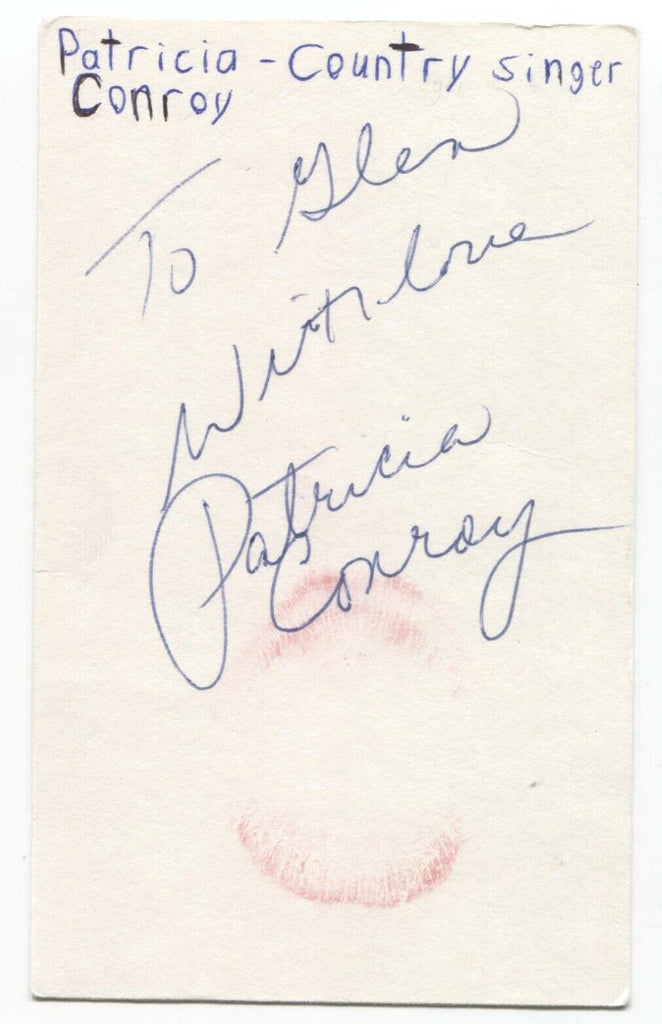 Patricia - Country singer
Conroy
To Glen
With love
Patricia
Conroy